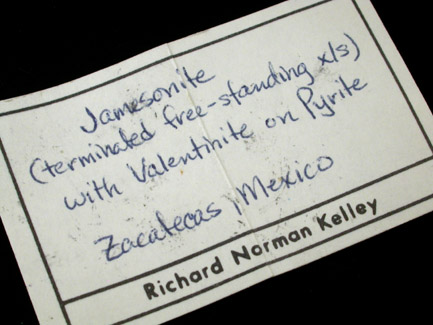 Jamesonite
(terminated free-standing xls)
with Valentinite on Pyrite
Zacatecas, Mexico
Richard Norman Kelley